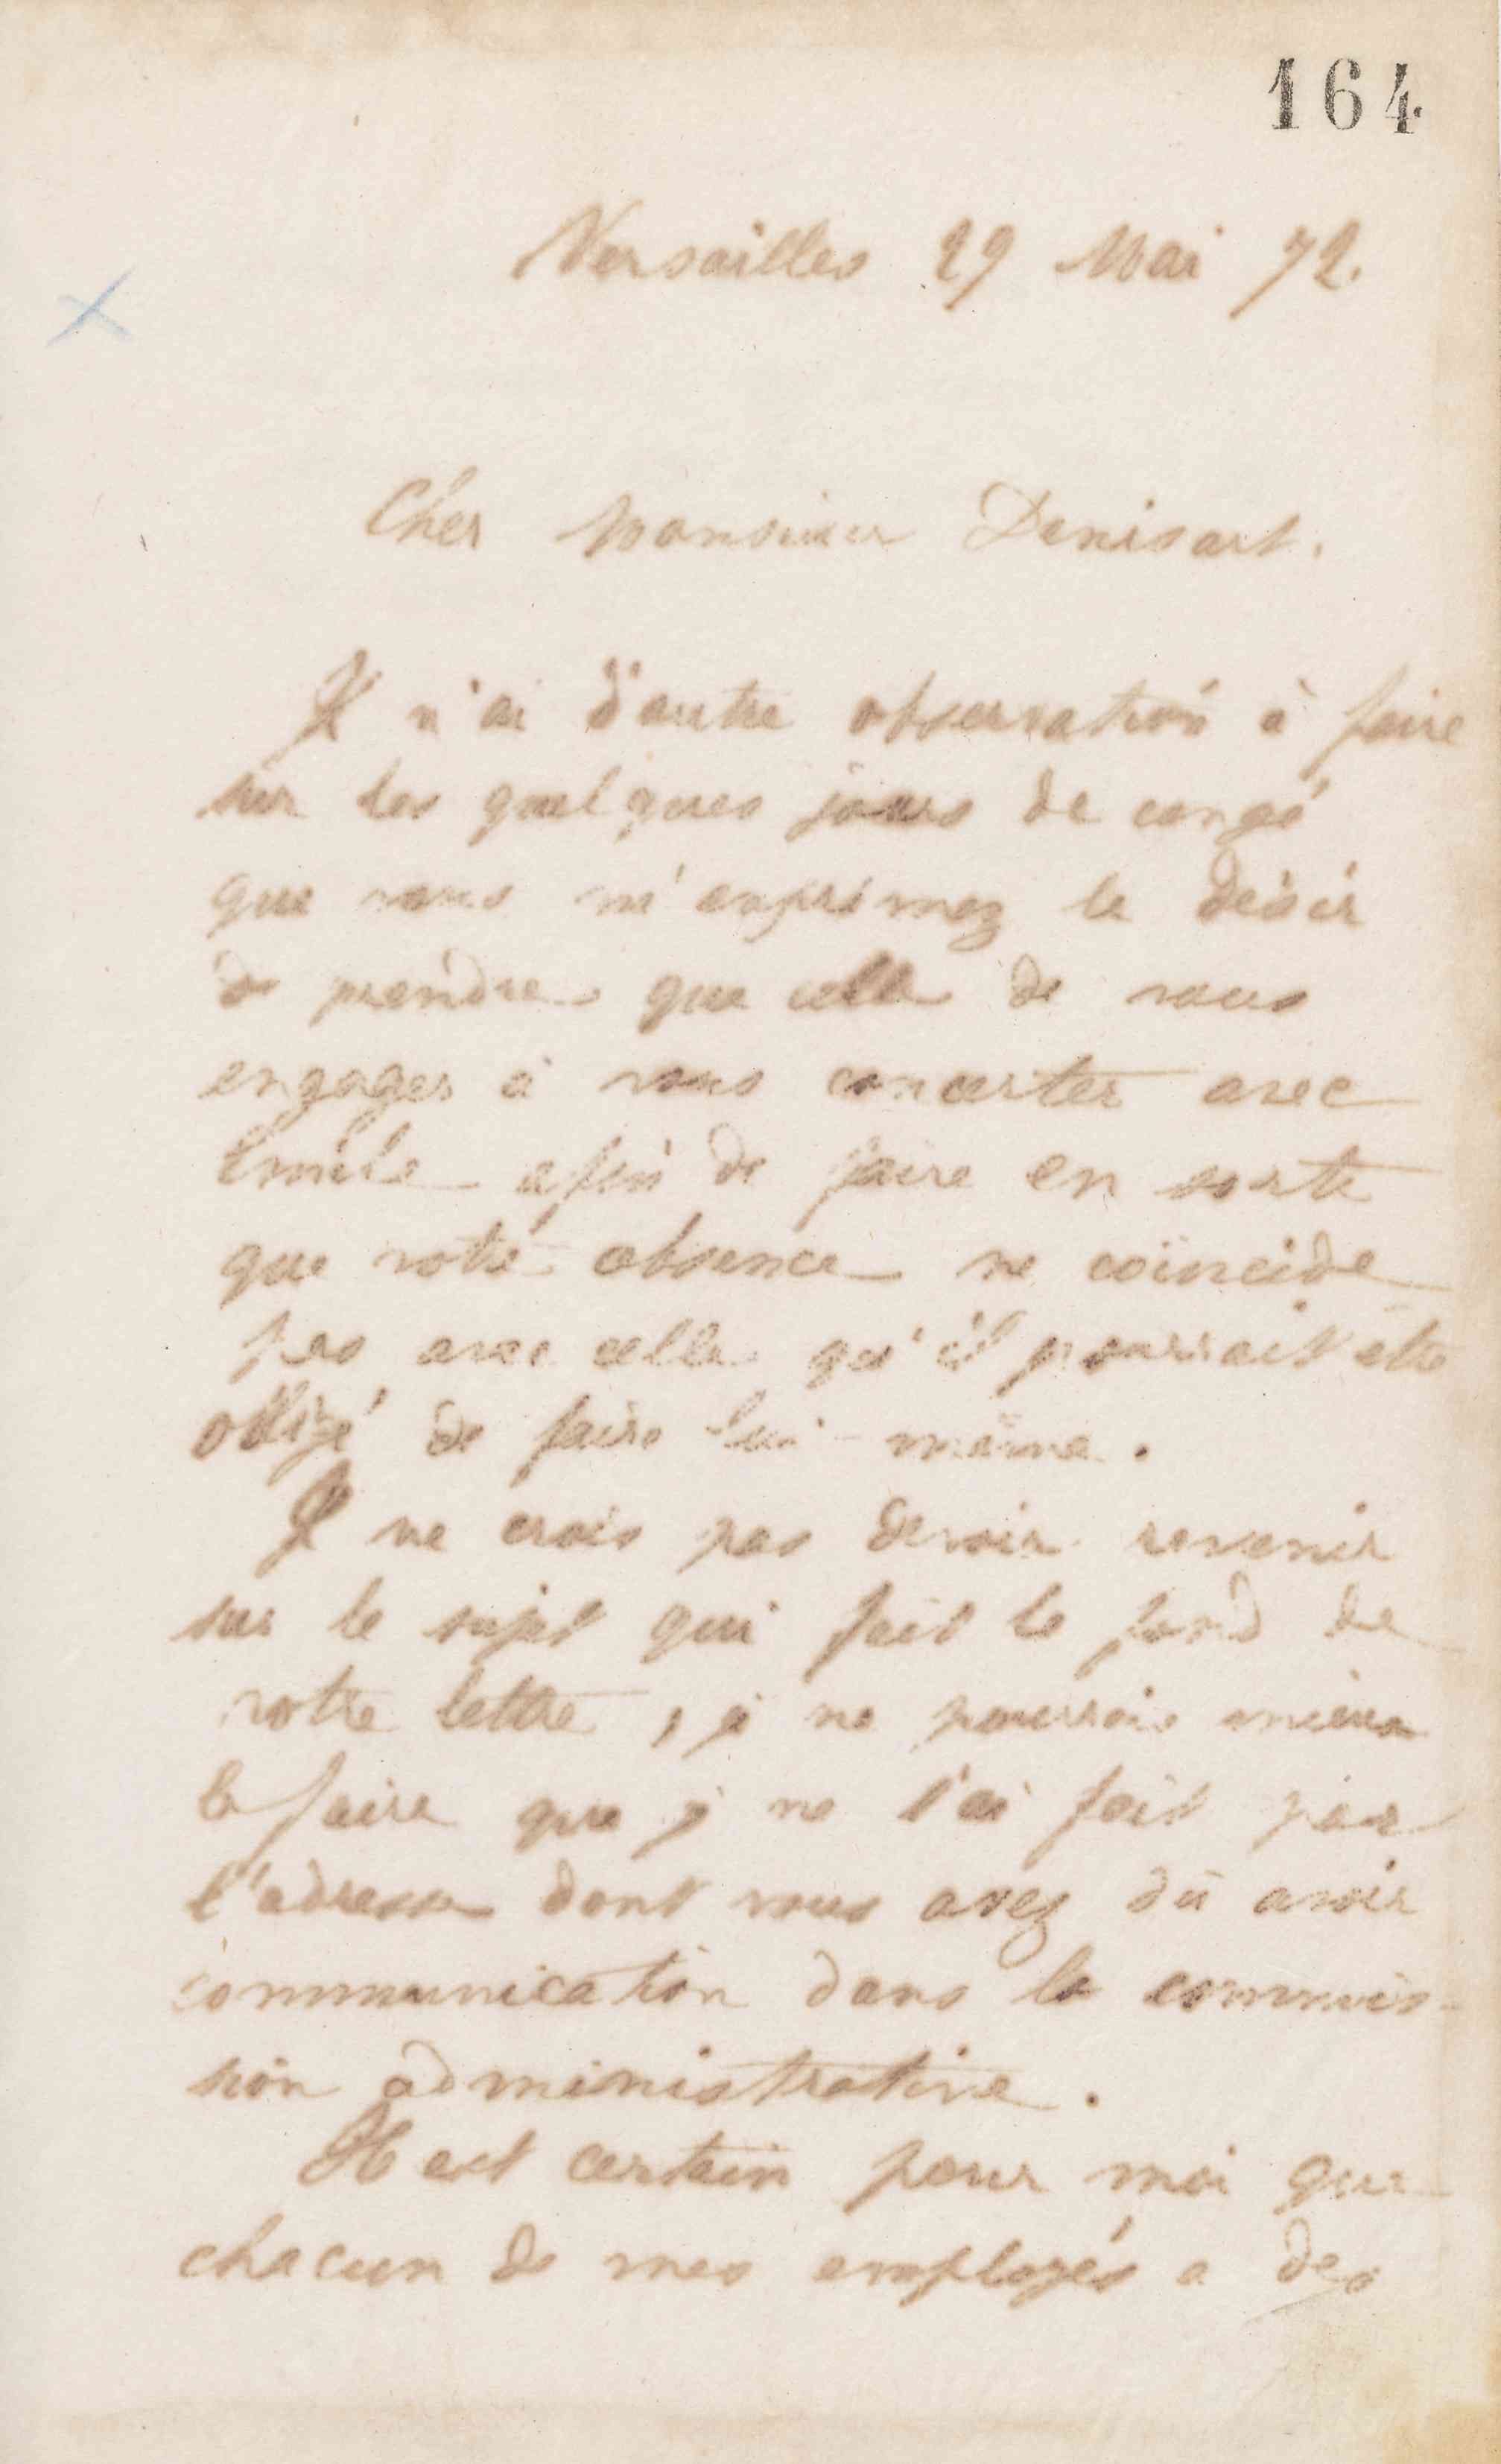 164
Versailles 29 Mai 72.
Cher Monsieur Denisart.
Je n'ai d'autre observation à faire
sur les quelques jours de congé
que vous m'exprimez le désir
de prendre que celle de vous
engager à vous concerter avec
Émile afin de faire en sorte
que votre absence ne coïncide
pas avec celle qu'il pourrait être
obligé de faire lui-même.
Je ne crois pas devoir revenir
sur le sujet qui fait le fond de
votre lettre, je ne pourrais mieux
le faire que je ne l'ai fait par
l'adresse dont vous avez dû avoir
communication dans la commis-
sion administrative.
Il est certain pour moi que
chacun de mes employés a des